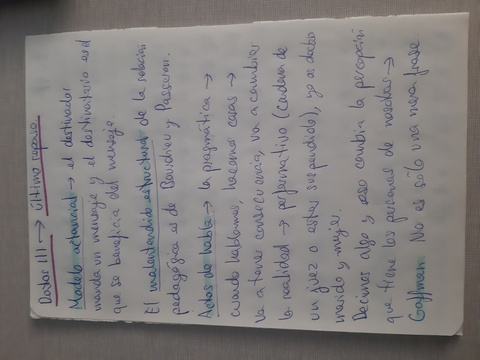 Doctor III → Último repaso
Modelo actancial → el destinador
manda un mensaje y el destinatario es el
que se beneficia del mensaje.
El malentendido estructural de la relación
pedagógica es de Bourdieu y Passeron.
Actos de habla → la pragmática →
cuando hablamos, hacemos cosas →
va a tener consecuencia, va a cambiar
la realidad → performativo (cadena de
un juez o estás suspendido), yo os declaro
marido y mujer.
Decimos algo y eso cambia la percepción
que tiene las personas de nosotros →
Goffman. No es sólo una mera frase